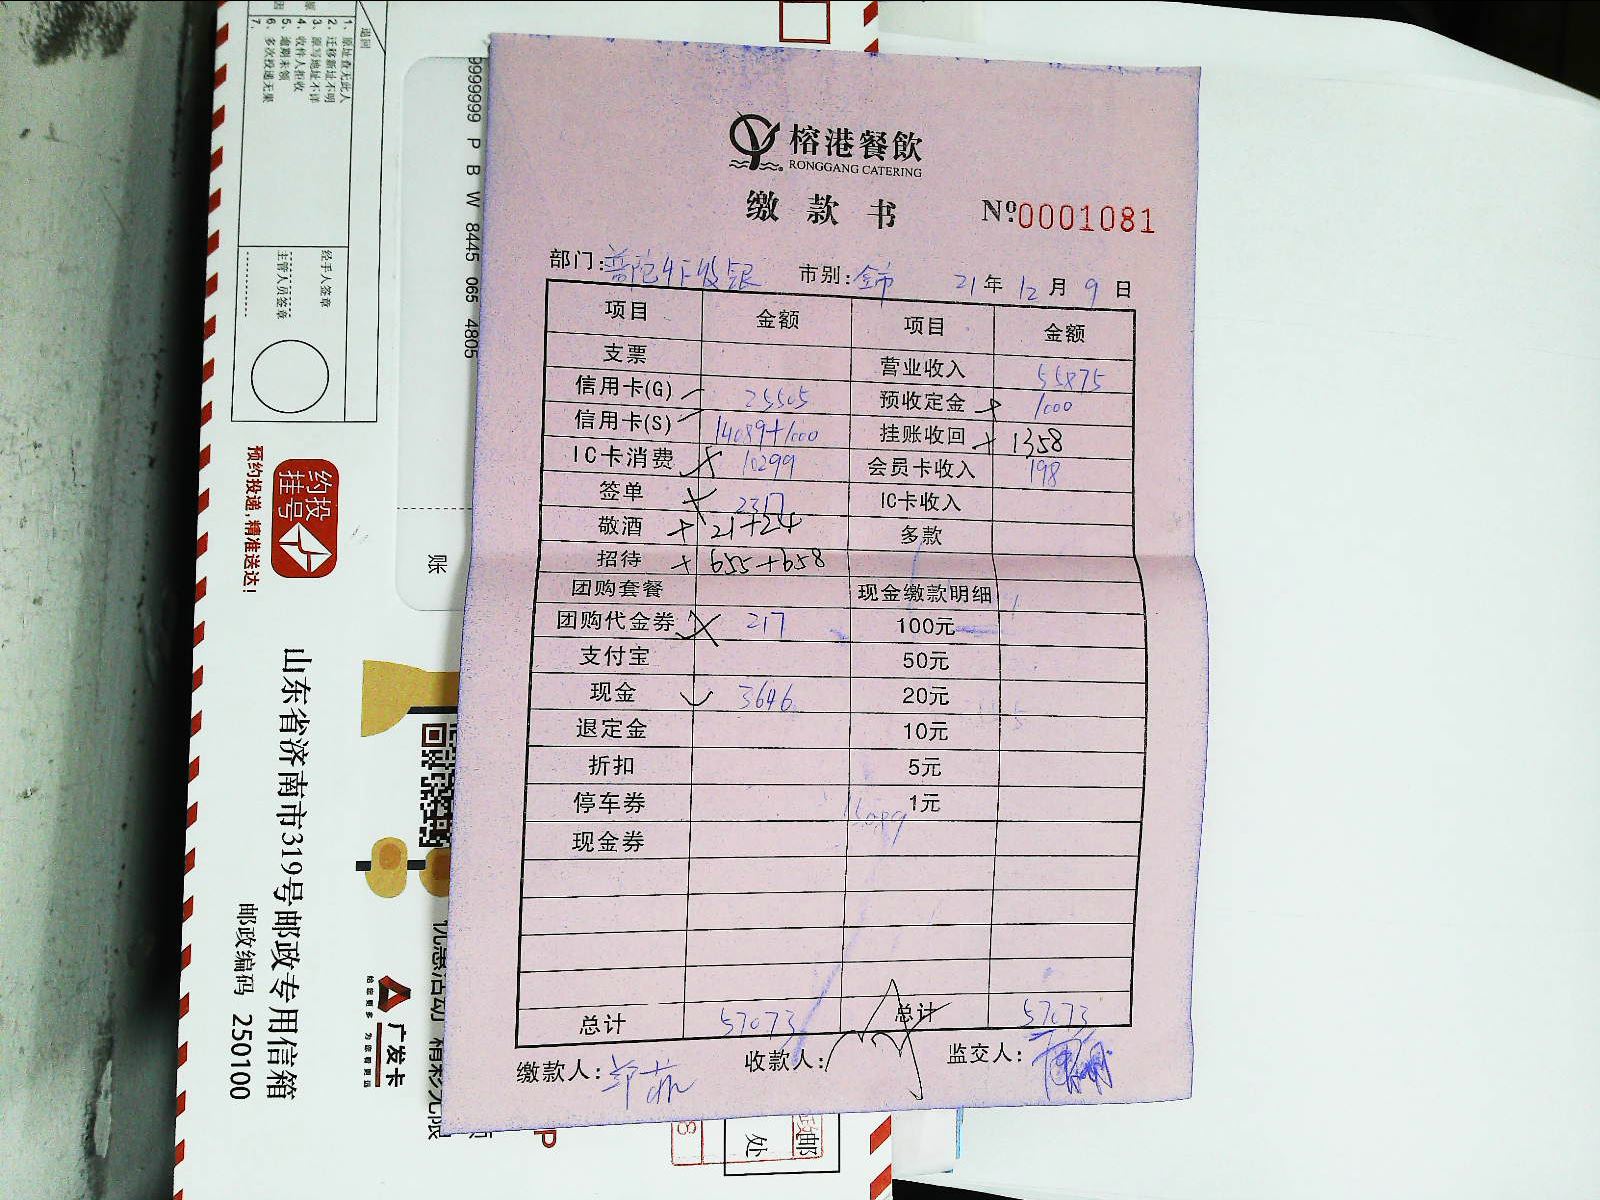 榕港餐飲
RONGGANG CATERING
缴款书 №:0001081
部门: 市别: 21年12月9日
项目 金额 项目 金额
支票 营业收入 55875
信用卡(G) 25505 预收定金 1000
信用卡(S) 14089+1000 挂账收回 1358
IC卡消费 10299 会员卡收入 198
签单 2317 IC卡收入
敬酒 21+24 多款
招待 655+658
团购套餐 现金缴款明细
团购代金券 217 100元
支付宝 50元
现金 3646 20元
退定金 10元
折扣 5元
停车券 1元
现金券
总计 57073 总计 57073
缴款人: 收款人: 监交人:
退回
原
因
1、原址查无此人
2、迁移新址不明
3、原写地址不详
4、收件人拒收
5、逾期未领
6、多次投递无果
7、
经手人签章
主管人员签章
9999999 P B W 8445 065 4805
账
约投
挂号
预约投递,精准送达!
山东省济南市319号邮政专用信箱
邮政编码 250100
广发卡
给您更多 为您看更远
优惠活动 精彩无限
处